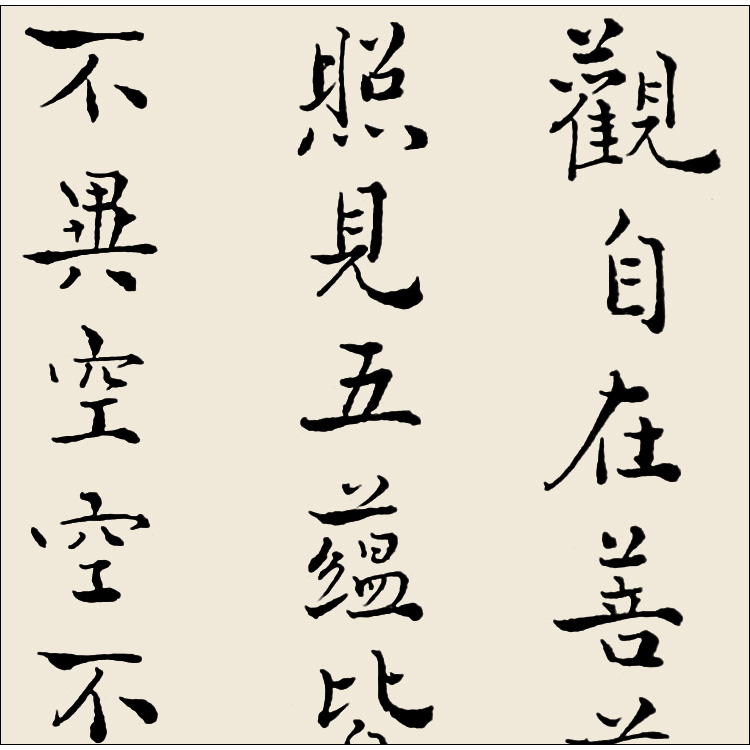 觀自在菩
照見五蘊皆
不異空空不